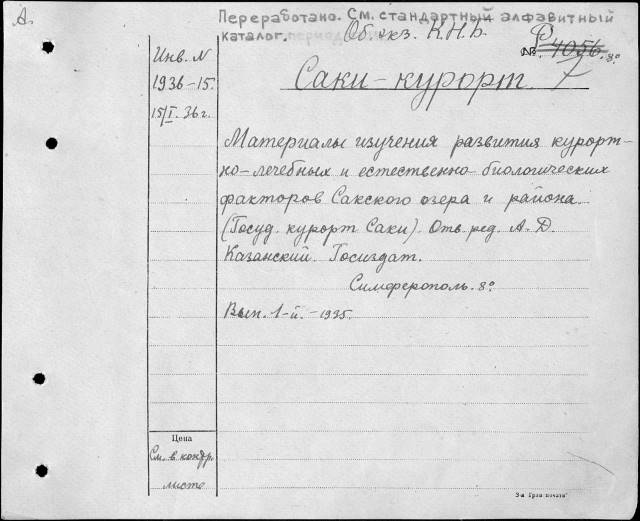 А.
Переработано. См. стандартный алфавитный
каталог.
Об. экз. К.Н.Б.
№ 4056. 8º
7
Инв. N
1936-15.
15/I. 36 г.
Саки-курорт.
Материалы изучения развития курорт-
но-лечебных и естественно-биологических
факторов Сакского озера и района.
(Госуд. курорт Саки). Отв. ред. А. Д.
Казанский. Госиздат.
Симферополь. 8º.
Вып. 1-й. - 1935.
Цена
См. в контр.
листе
3-я Грав. печати"